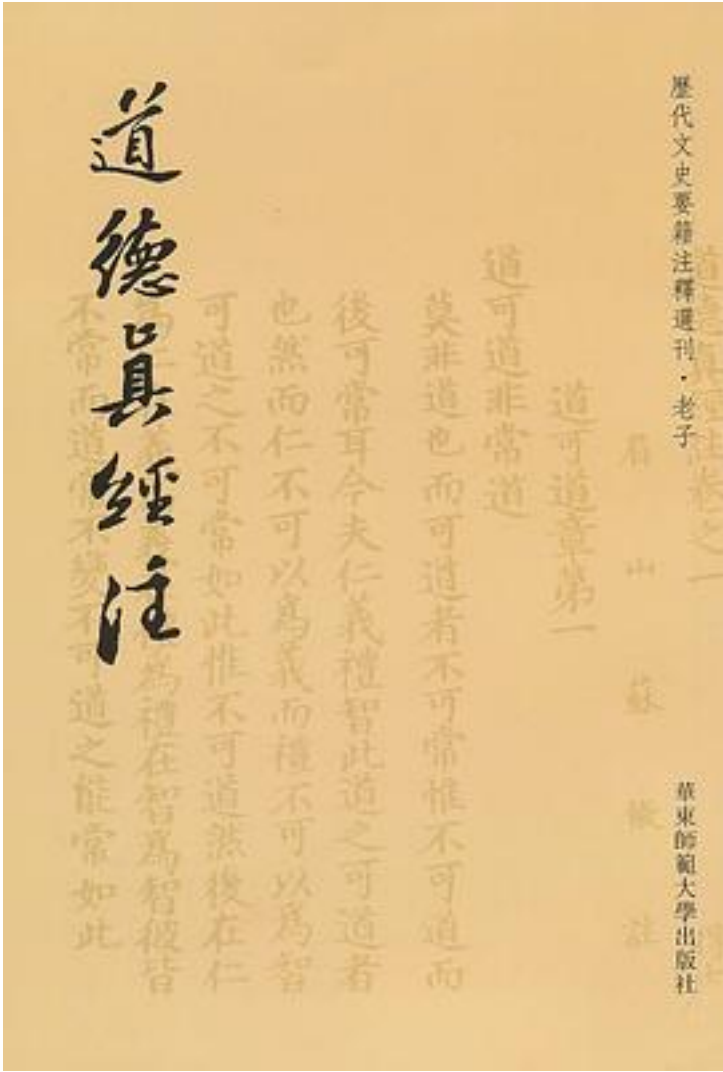 歷代文史要籍注釋選刊·老子
華東師範大學出版社
眉山蘇轍註
道可道章第一
道可道非常道
莫非道也而可道者不可常惟不可道而
後可常耳今夫仁義禮智此道之可道者
也然而仁不可以爲義而禮不可以爲智
可道之不可常如此惟不可道然後在仁
爲禮在智爲智彼皆
不常而道常不變不可道之能常如此
道德眞經注